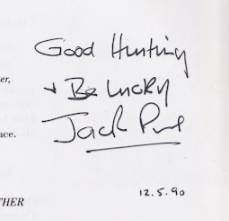 Good Hunting
er,
+ Be Lucky
Jack
ce.
12.5.90
THER